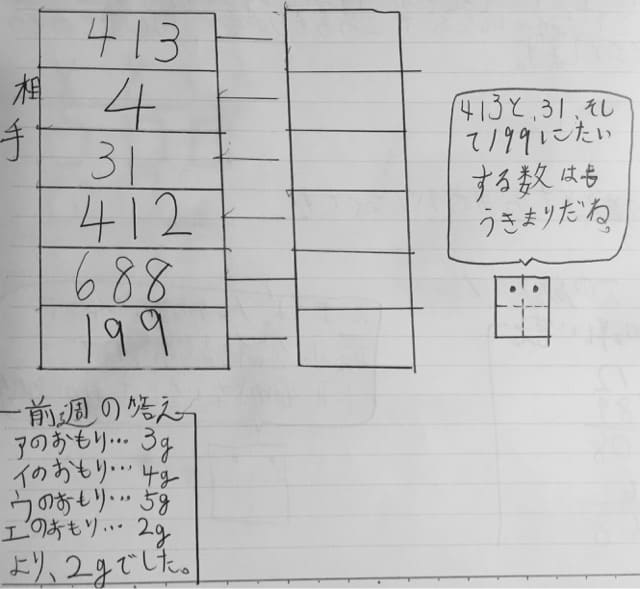 相手
413
4
31
412
688
199
413と、31、そし
て199にたい
する数はも
うきまりだね。
前週の答え
アのおもり… 3g
イのおもり… 4g
ウのおもり… 5g
エのおもり… 2g
より、2gでした。